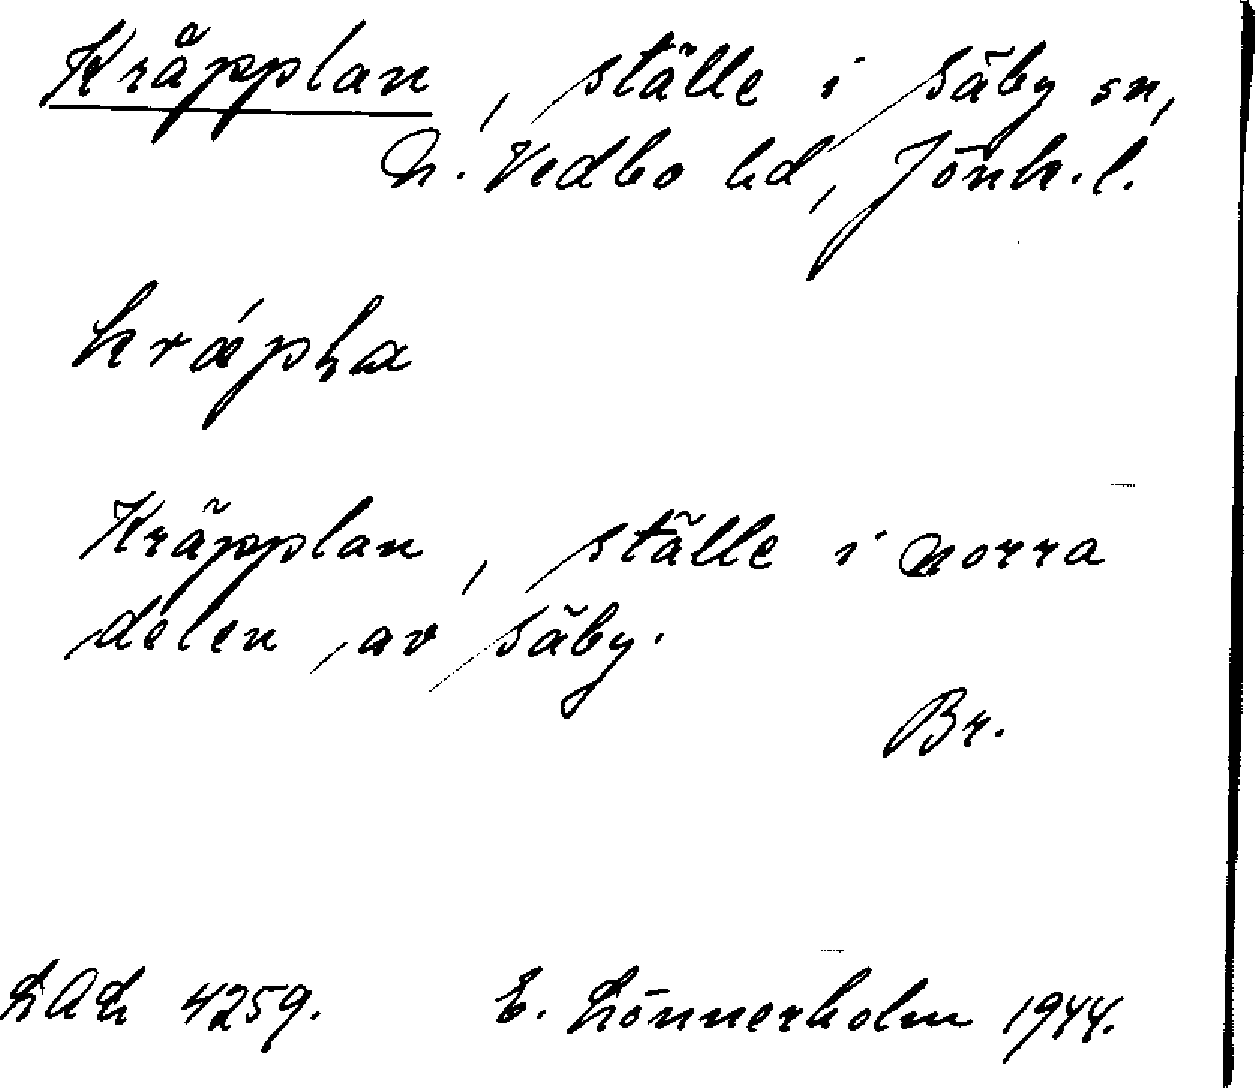 Kräpplan, ställe i Säby sn,
N. Vedbo hd, Jönk. l.
krǽpla
Kräpplan, ställe i norra
delen av Säby.
Br.
LAL 4259. E. Lönnerholm 1944.